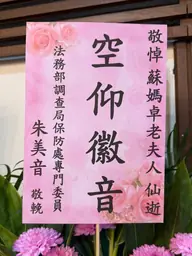 敬悼 蘇媽卓老夫人 仙逝
空仰徽音
法務部調查局保防處專門委員
朱美音 敬輓